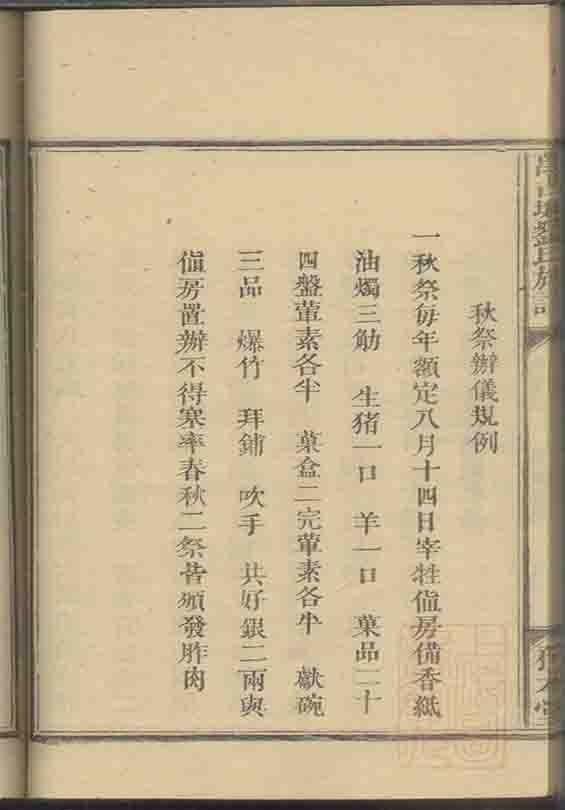 秋祭辦儀規例
一秋祭每年額定八月十四日宰牲值房備香紙
油燭三觔 生猪一口 羊一口 菓品二十
四盤葷素各半 菓盒二完葷素各半 獻碗
三品 爆竹 拜鋪 吹手 共好銀二兩與
值房置辦不得寒率春秋二祭昔頒發胙肉